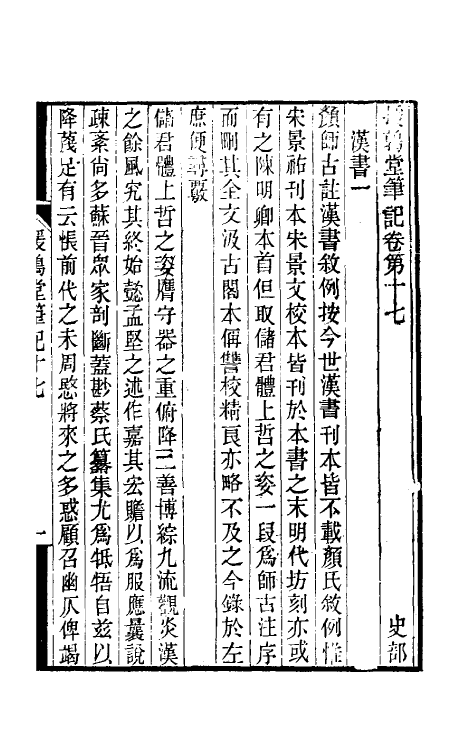 援鶉堂筆記卷第十七 史部
漢書一
顏師古註漢書敘例按今世漢書刊本皆不載顏氏敘例惟
宋景祐刊本宋景文校本皆刊於本書之末明代坊刻亦或
有之陳明卿本首但取儲君體上哲之姿一段爲師古注序
而刪其全文汲古閣本偁讐校精良亦略不及之今錄於左
庶便尋覈
儲君體上哲之姿膺守器之重俯降三善博綜九流觀炎漢
之餘風究其終始懿孟堅之述作嘉其宏贍以爲服應曩說
疎紊尙多蘇晉眾家剖斷蓋尟蔡氏纂集尤爲牴牾自兹以
降蔑足有云悵前代之未周愍將來之多惑顧召幽仄俾竭
援鶉堂筆記十七 一